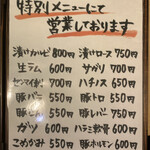 特別メニューにて
営業しております
漬けカルビ 800円 漬けロース 750円
生ラム 600円 サガリ 700円
センマイ刺し 700円 ハチノス 650円
豚バラ 550円 豚トロ 550円
豚ロース 550円 豚レバー 550円
ガツ 600円 ハラミ軟骨 600円
こめかみ 550円 豚ホルモン 600円